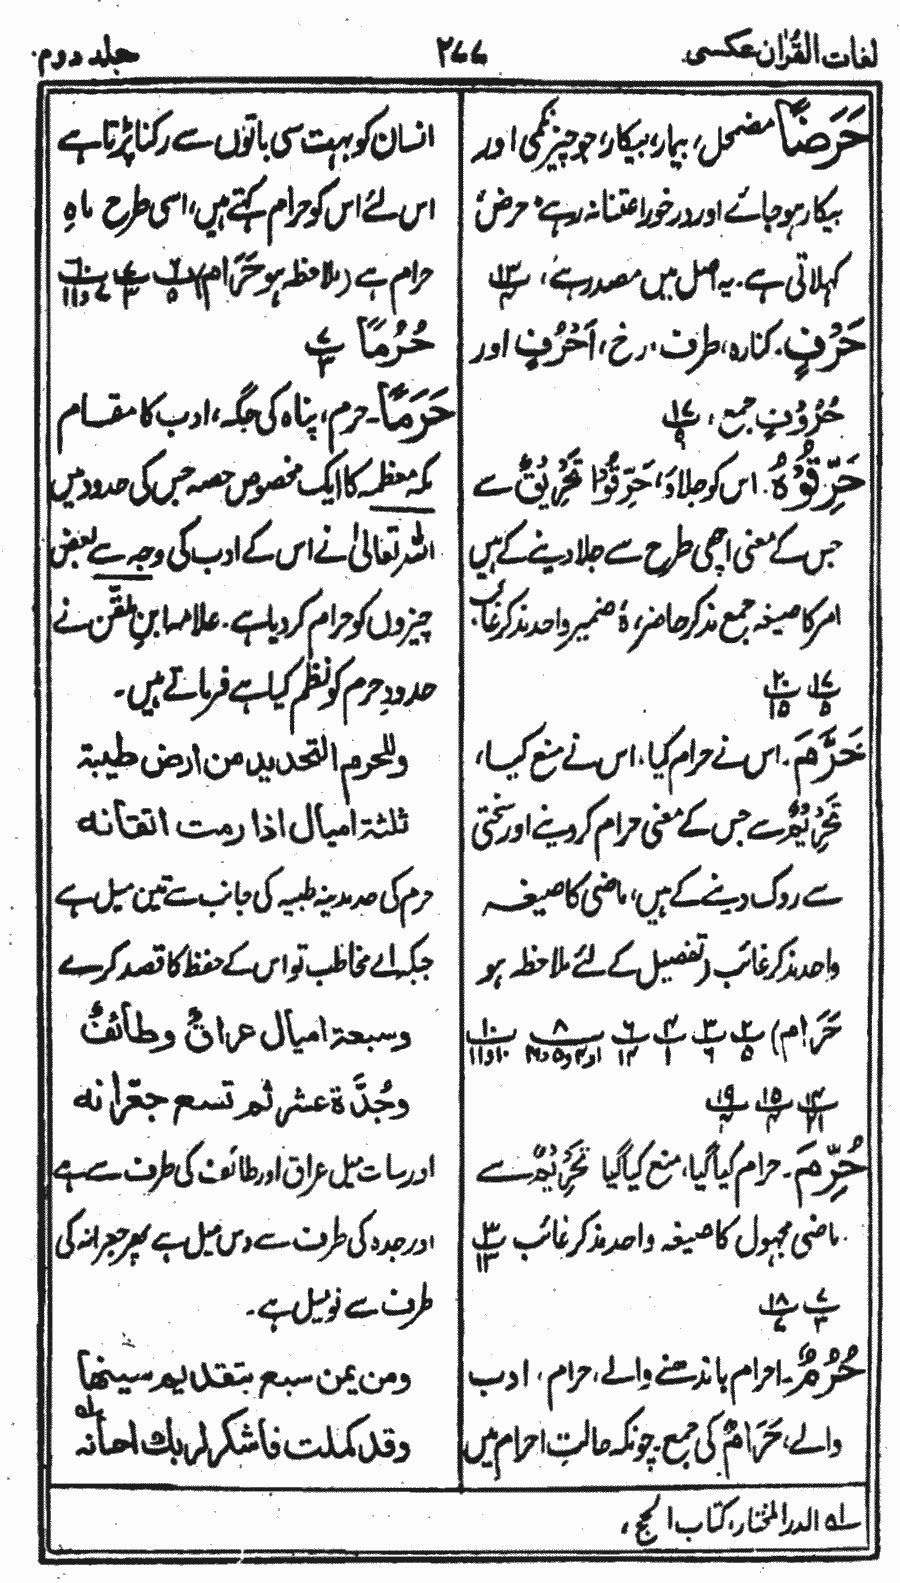 لغات القرآن عکسی
۲۷۷
جلد دوم
حَرَضًا مضمحل، بیمار، بیکار، جو چیز نکمی اور
بیکار ہو جائے اور درخورِ اعتنا نہ رہے، حرض
کہلاتی ہے۔ یہ اصل میں مصدر ہے، ۱۳/۴
حَرْفٍ۔ کنارہ، طرف، رخ، اَحْرُفٍ اور
حُرُوْفٍ جمع، ۱۷/۹
حَرِّقُوْهُ۔ اس کو جلاؤ، حَرِّقُوْا تَحْرِیْقٌ سے
جس کے معنی اچھی طرح سے جلا دینے کے ہیں
امر کا صیغہ جمع مذکر حاضر، ہٗ ضمیر واحد مذکر غائب۔
۱۷/۵ ۲۰/۱۵
حَرَّمَ۔ اس نے حرام کیا، اس نے منع کیا،
تَحْرِیْمٌ سے جس کے معنی حرام کر دینے اور سختی
سے روک دینے کے ہیں، ماضی کا صیغہ
واحد مذکر غائب (تفصیل کے لئے ملاحظہ ہو
حَرَام) ۲/۵ ۳/۶ ۴/۱ ۶/۱۲ ۸ ۱۰/۱۰ و ۱۱
۱۴/۲۱ ۱۵/۴ ۱۹/۴
حُرِّمَ۔ حرام کیا گیا، منع کیا گیا تَحْرِیْمٌ سے
ماضی مجہول کا صیغہ واحد مذکر غائب ۳/۱۳
۷/۳ ۱۸/۷
حُرُمٌ۔ احرام باندھنے والے، حرام، ادب
والے، حَرَامٌ کی جمع۔ چونکہ حالتِ احرام میں
انسان کو بہت سی باتوں سے رکنا پڑتا ہے
اس لئے اس کو حرام کہتے ہیں، اسی طرح ماہِ
حرام ہے (ملاحظہ ہو حَرَام) ۶/۵ ۷/۳ ۱۰/۱۱ و ۷
حُرُمًا ۷/۳
حَرَمًا۔ حرم، پناہ کی جگہ، ادب کا مقام
مکہ معظمہ کا ایک مخصوص حصہ جس کی حدود میں
اللہ تعالیٰ نے اس کے ادب کی وجہ سے بعض
چیزوں کو حرام کر دیا ہے۔ علامہ ابنِ ملقّن نے
حدودِ حرم کو نظم کیا ہے فرماتے ہیں۔
وللحرم التحدید من ارض طیبة
ثلثة امیال اذا رمت اتقانه
حرم کی حد مدینہ طیبہ کی جانب سے تین میل ہے
جبکہ اے مخاطب تو اس کے حفظ کا قصد کرے
وسبعة امیال عراقٌ وطائفٌ
وجُدَّة عشر ثم تسع جعرّانه
اور سات میل عراق اور طائف کی طرف سے ہے
اور جدہ کی طرف سے دس میل ہے پھر جعرانہ کی
طرف سے نو میل ہے۔
ومن یمن سبع بتقدیم سینها
وقد کملت فاشکر لربك احسانه لہ
لہ الدر المختار، کتاب الحج،